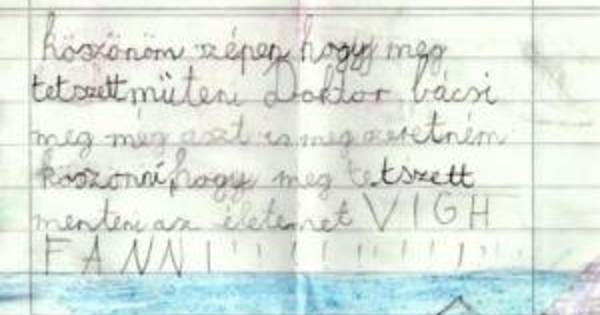 köszönöm szépen hogy meg
tetszett műteni Doktor bácsi
meg még aszt is megszeretném
köszönni, hogy meg tetszett
menteni az életemet VIGH
FANNI!!!!!!!!!!!!